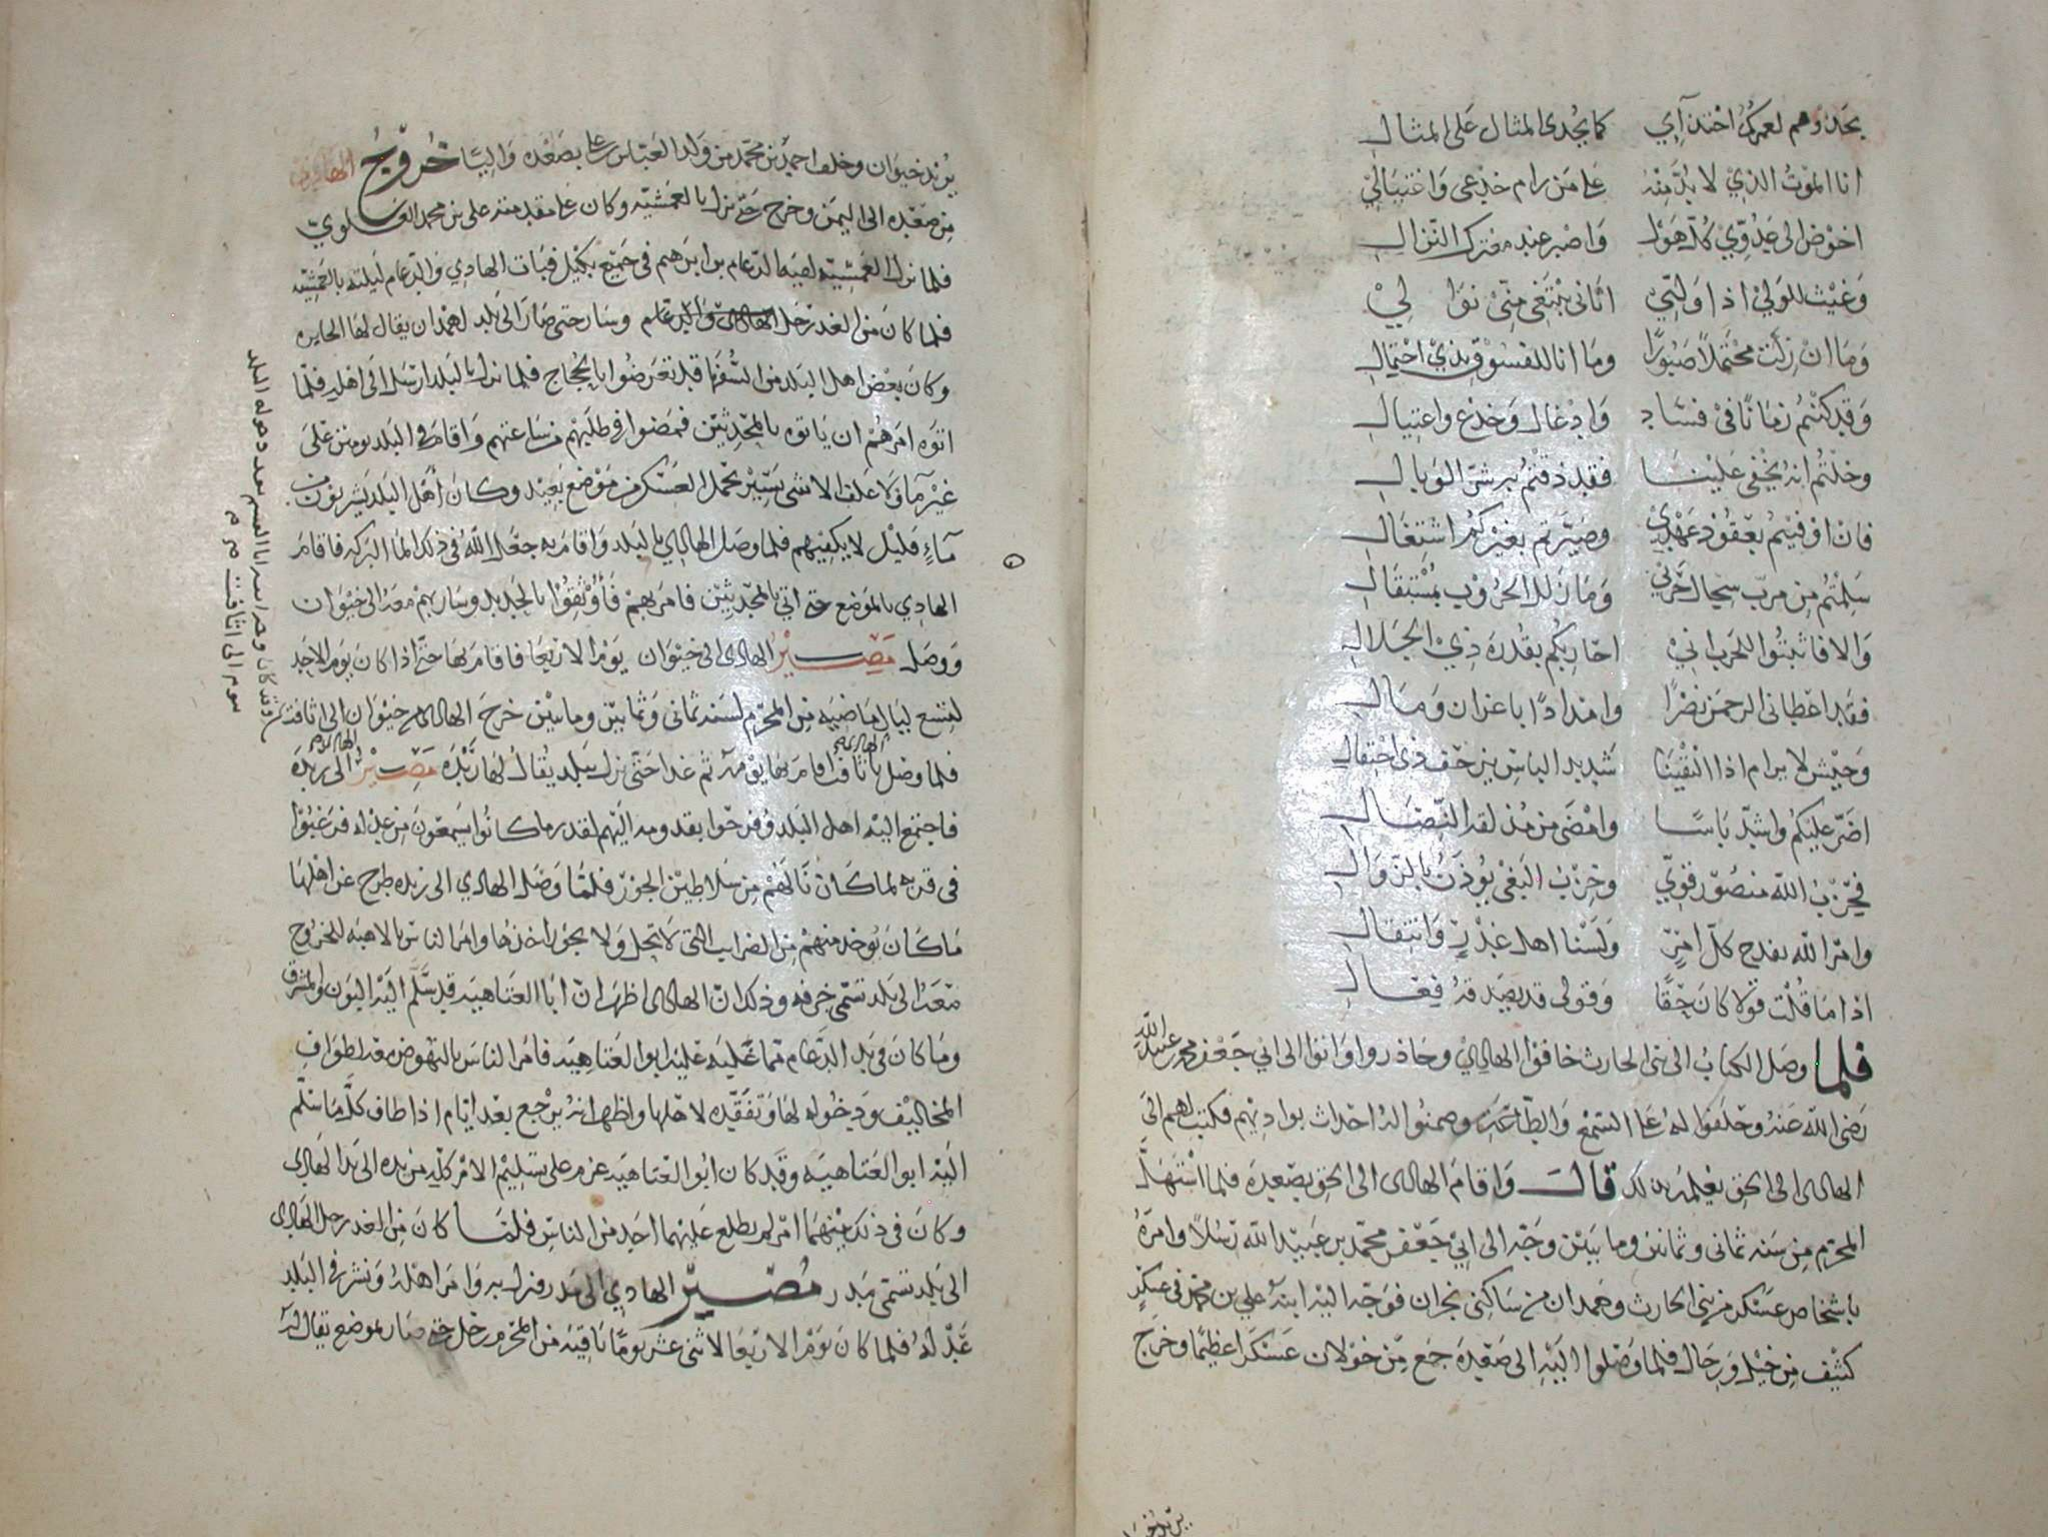 يحذوهم لعمرك اختذآي كما يحذى المثال على المثال
انا الموت الذي لا بد منه على من رام خدعى واغتيالي
اخوض الى عدوي كل هول واصبر عند معترك النزال
وغيث للولي اذا ولتي اتانى يبتغى منى نوالي
وما ان زلت محتملا صبورا وما انا للفسوق بذي احتمال
وقد كنتم زمانا في فساد وادغال وخدع واغتيال
وخلتم انه يخفى علينا فقد ذقتم به شر الوبال
فان اوفيتم بعقود عهدي وصيرتم بغيركم اشتغال
سلمتم من سجال حربي وما زلل الحروب بمستقال
والا فاثبتوا للحرب اني احاربكم بقدرة ذي الجلال
فقد اعطانى الرحمن نصرا وامدادا باعزان ومال
وجيش لا يرام اذا التقينا شديد الباس بين خف ذى احتفال
اضر عليكم واشد باسا وامضى من مذلقه النصال
فحزب الله منصور قوي وحزب البغى يوذن بالزوال
وامر الله يفدح كل امر ولسنا اهل غدر وانتقال
اذا ما قلت قولا كان حقا وقولى قد يصدقه فعال
فلما وصل الكتاب الى بنى الحارث خافوا الهادي وحاذروا واتوا الى ابي جعفر محمد بن عبيد الله
رضى الله عنه وحلفوا له على السمع والطاعة وضمنوا له احداث بواديهم فكتب لهم الى
الهادى الى الحق يعلمه بذلك قال واقام الهادى الى الحق بصعدة فلما استهل
المحرم من سنه ثمانى وثمانين ومايتين وجه الى ابي جعفر محمد بن عبيد الله رسلا وامره
باشخاص عسكر من بني الحارث وهمدان من ساكنى نجران فوجه اليه ابنه علي بن محمد في عسكر
كثيف من خيل ورجال فلما وصلوا اليه الى صعدة جمع من خولان عسكرا عظيما وخرج
يريد خيوان
يريد خيوان وخلف احمد بن محمد من ولد العباس بن علي بصعدة واليا خروج الهادي
من صعده الى اليمن وخرج حتى نزل بالعمشيه وكان على مقدمته على بن محمد العلوي
فلما نزل العمشيه لقيه الدعام بن ابرهيم في جميع بكيل فبات الهادي والدعام ليلته بالعمشيه
فلما كان من الغد رحل الهادى والدعام وسار حتى صار الى بلد لهمدان يقال لها الحايره
وكان بعض اهل البلد من السفهآ قد تعرضوا بالحجاج فلما نزل بالبلد ارسل الى اهله فلما
اتوه امرهم ان ياتوه بالمحدثين فمضوا في طلبهم من ساعتهم واقام في البلد يومين على
غير مآ ولا علف الا شى يسير يحمل العسكر من موضع بعيد وكان أهل البلد يشربون من
مآء قليل لا يكفيهم فلما وصل الهادي بالبلد واقام به جعل الله في ذلك المآ البركه فاقام
الهادي بالموضع حتى اتي بالمحدثين فامر بهم فأوثقوا بالحديد وسار بهم معه الى خيوان
ووصل مصير الهادى الى خيوان يوم الاربعا فاقام بها حتى اذا كان يوم الاحد
لتسع ليال ماضيه من المحرم لسنه ثمانى وثمانين ومايتين خرج الهادى من خيوان الى اثافت
فلما وصل باثافت اقام الهادى بها يومه ثم غدا حتى نزل ببلد يقال لها ريده مصير الهادى الى ريدة
فاجتمع اليه اهل البلد وفرحوا بقدومه اليهم لقدر ما كانوا يسمعون من عدله فرغبوا
فى قربه لما كان نالهم من سلاطين الجور فلما وصل الهادي الى ريده طرح عن اهلها
ما كان يوخذ منهم من الضرايب التى لا تحل ولا يجوز اخذها وامر الناس بالاهبه للخروج
معه الى بلد تسمى خرفه وذلك ان الهادى اظهر ان ابا العتاهيه قد سلم اليه البون والمشرق
وما كان في يد الدعام مما غلبه عليه ابو العتاهيه فامر الناس بالنهوض معه لطواف
المخاليف ودخوله لها وتفقده لاحلها واظهر انه يرجع بعد ايام اذا طاف كل ما سلم
اليه ابو العتاهيه وقد كان ابو العتاهيه عزم على تسليم الامر كله من يده الى يد الهادى
وكان في ذلك بينهما امر لم يطلع عليهما احد من الناس فلما كان من الغد رحل الهادى
الى بلد تسمى مدر مصير الهادي الى مدر فنزل به وامر اهله ونشر في البلد
عدله فلما كان يوم الاربعا لاثنى عشر يوما باقيه من المحرم رحل حتى صار بموضع يقال له